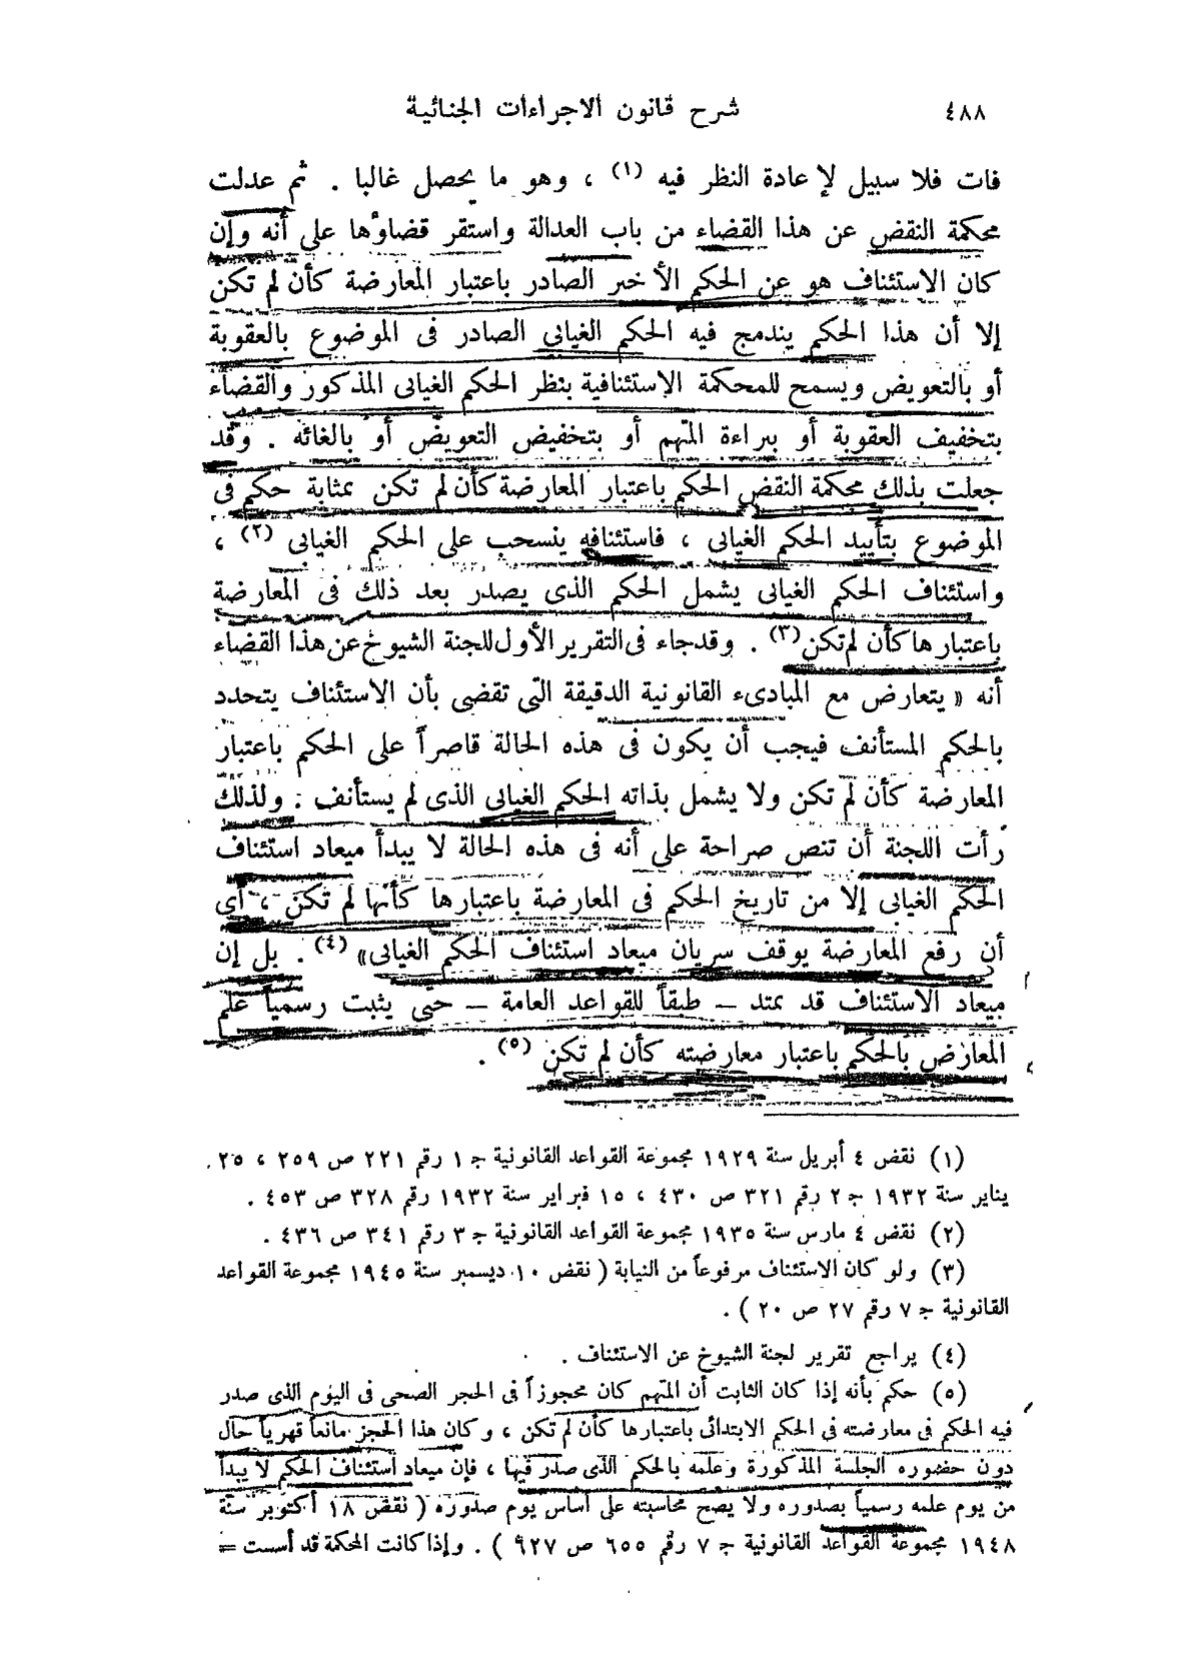 ٤٨٨
شرح قانون الاجراءات الجنائية
فات فلا سبيل لإعادة النظر فيه (١) ، وهو ما يحصل غالبا . ثم عدلت
محكمة النقض عن هذا القضاء من باب العدالة واستقر قضاؤها على أنه وإن
كان الاستئناف هو عن الحكم الأخير الصادر باعتبار المعارضة كأن لم تكن
إلا أن هذا الحكم يندمج فيه الحكم الغيابى الصادر فى الموضوع بالعقوبة
أو بالتعويض ويسمح للمحكمة الاستئنافية بنظر الحكم الغيابى المذكور والقضاء
بتخفيف العقوبة أو ببراءة المتهم أو بتخفيض التعويض أو بالغائه . وقد
جعلت بذلك محكمة النقض الحكم باعتبار المعارضة كأن لم تكن بمثابة حكم فى
الموضوع بتأييد الحكم الغيابى ، فاستئنافه ينسحب على الحكم الغيابى (٢) ،
واستئناف الحكم الغيابى يشمل الحكم الذى يصدر بعد ذلك فى المعارضة
باعتبارها كأن لم تكن (٣) . وقد جاء فى التقرير الأول للجنة الشيوخ عن هذا القضاء
أنه « يتعارض مع المبادىء القانونية الدقيقة التى تقضى بأن الاستئناف يتحدد
بالحكم المستأنف فيجب أن يكون فى هذه الحالة قاصراً على الحكم باعتبار
المعارضة كأن لم تكن ولا يشمل بذاته الحكم الغيابى الذى لم يستأنف . ولذلك
رأت اللجنة أن تنص صراحة على أنه فى هذه الحالة لا يبدأ ميعاد استئناف
الحكم الغيابى إلا من تاريخ الحكم فى المعارضة باعتبارها كأنها لم تكن ، أى
أن رفع المعارضة يوقف سريان ميعاد استئناف الحكم الغيابى» (٤) . بل إن
ميعاد الاستئناف قد يمتد – طبقاً للقواعد العامة – حتى يثبت رسمياً علم
المعارض بالحكم باعتبار معارضته كأن لم تكن (٥) .
(١) نقض ٤ أبريل سنة ١٩٢٩ مجموعة القواعد القانونية ج ١ رقم ٢٢١ ص ٢٥٩ ، ٢٥
يناير سنة ١٩٣٢ ج ٢ رقم ٣٢١ ص ٤٣٠ ، ١٥ فبراير سنة ١٩٣٢ رقم ٣٢٨ ص ٤٥٣ .
(٢) نقض ٤ مارس سنة ١٩٣٥ مجموعة القواعد القانونية ج ٣ رقم ٣٤١ ص ٤٣٦ .
(٣) ولو كان الاستئناف مرفوعاً من النيابة ( نقض ١٠ ديسمبر سنة ١٩٤٥ مجموعة القواعد
القانونية ج ٧ رقم ٢٧ ص ٢٠ ) .
(٤) يراجع تقرير لجنة الشيوخ عن الاستئناف .
(٥) حكم بأنه إذا كان الثابت أن المتهم كان محجوزاً فى الحجر الصحى فى اليوم الذى صدر
فيه الحكم فى معارضته فى الحكم الابتدائى باعتبارها كأن لم تكن ، وكان هذا الحجز مانعاً قهرياً حال
دون حضوره الجلسة المذكورة وعلمه بالحكم الذى صدر فيها ، فإن ميعاد استئناف الحكم لا يبدأ
من يوم علمه رسمياً بصدوره ولا يصح محاسبته على أساس يوم صدوره ( نقض ١٨ أكتوبر سنة
١٩٤٨ مجموعة القواعد القانونية ج ٧ رقم ٦٥٥ ص ٩٢٧ ) . وإذا كانت المحكمة قد أسست =